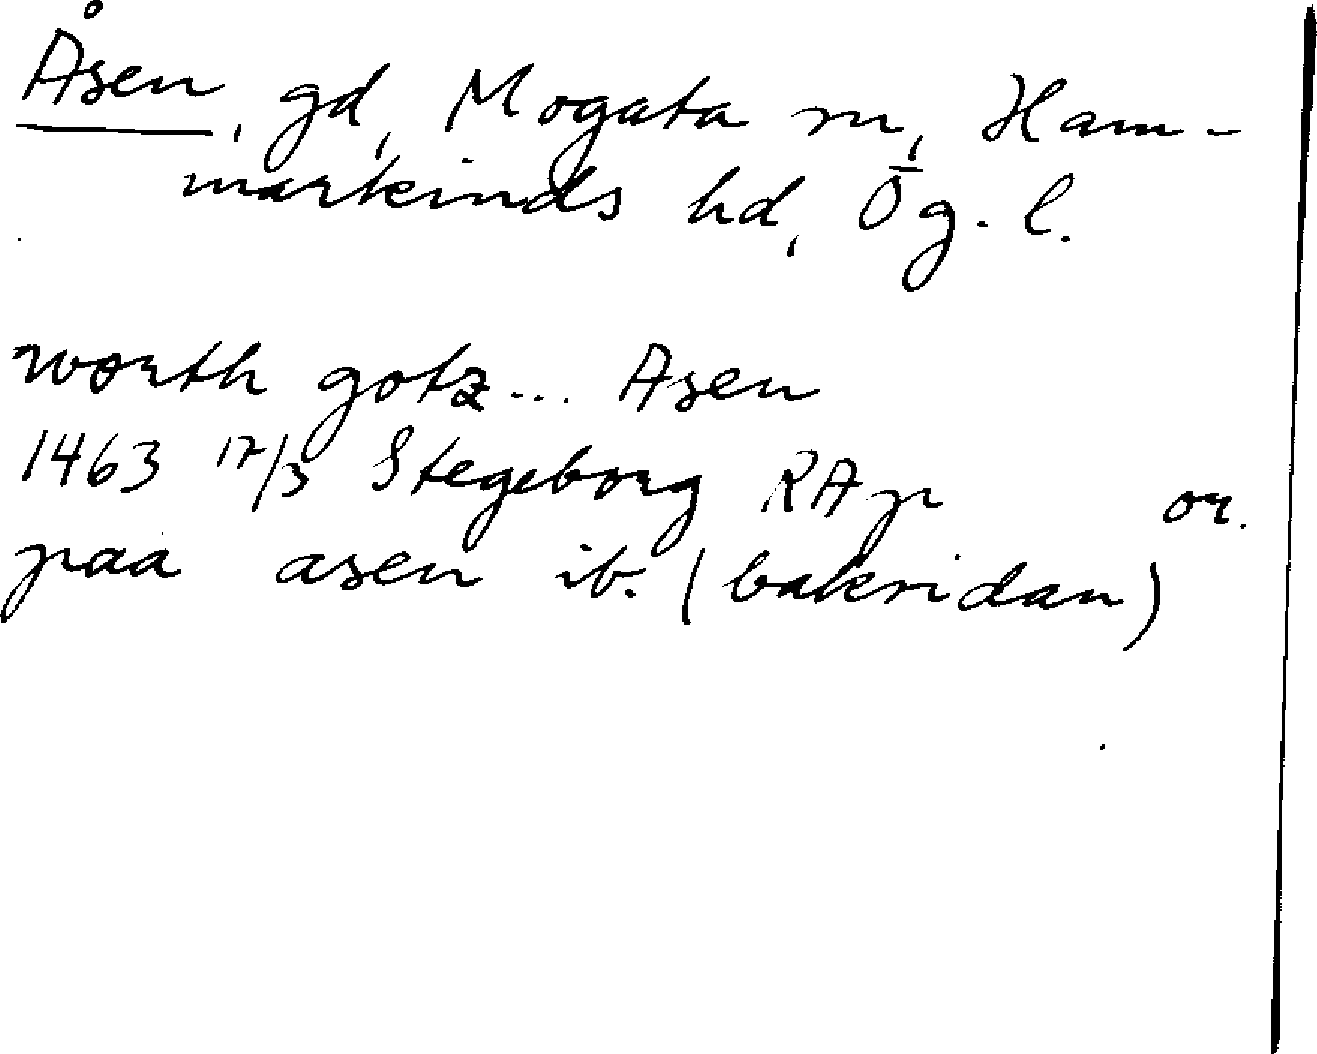 Åsen, gd, Mogata sn, Ham-
markinds hd, Ög. l.
worth gotz... Asen
1463 17/3 Stegeborg RAp or.
paa asen ib. (baksidan)